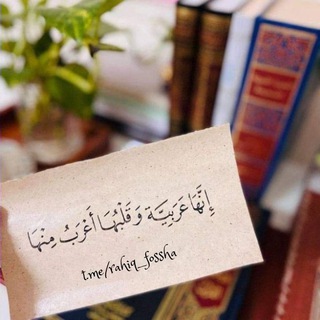 إِنَّهَا عَرَبِيَّة وَ قَلْبُهَا أَعْرَبُ مِنْهَا
t.me/rahiq_fossha